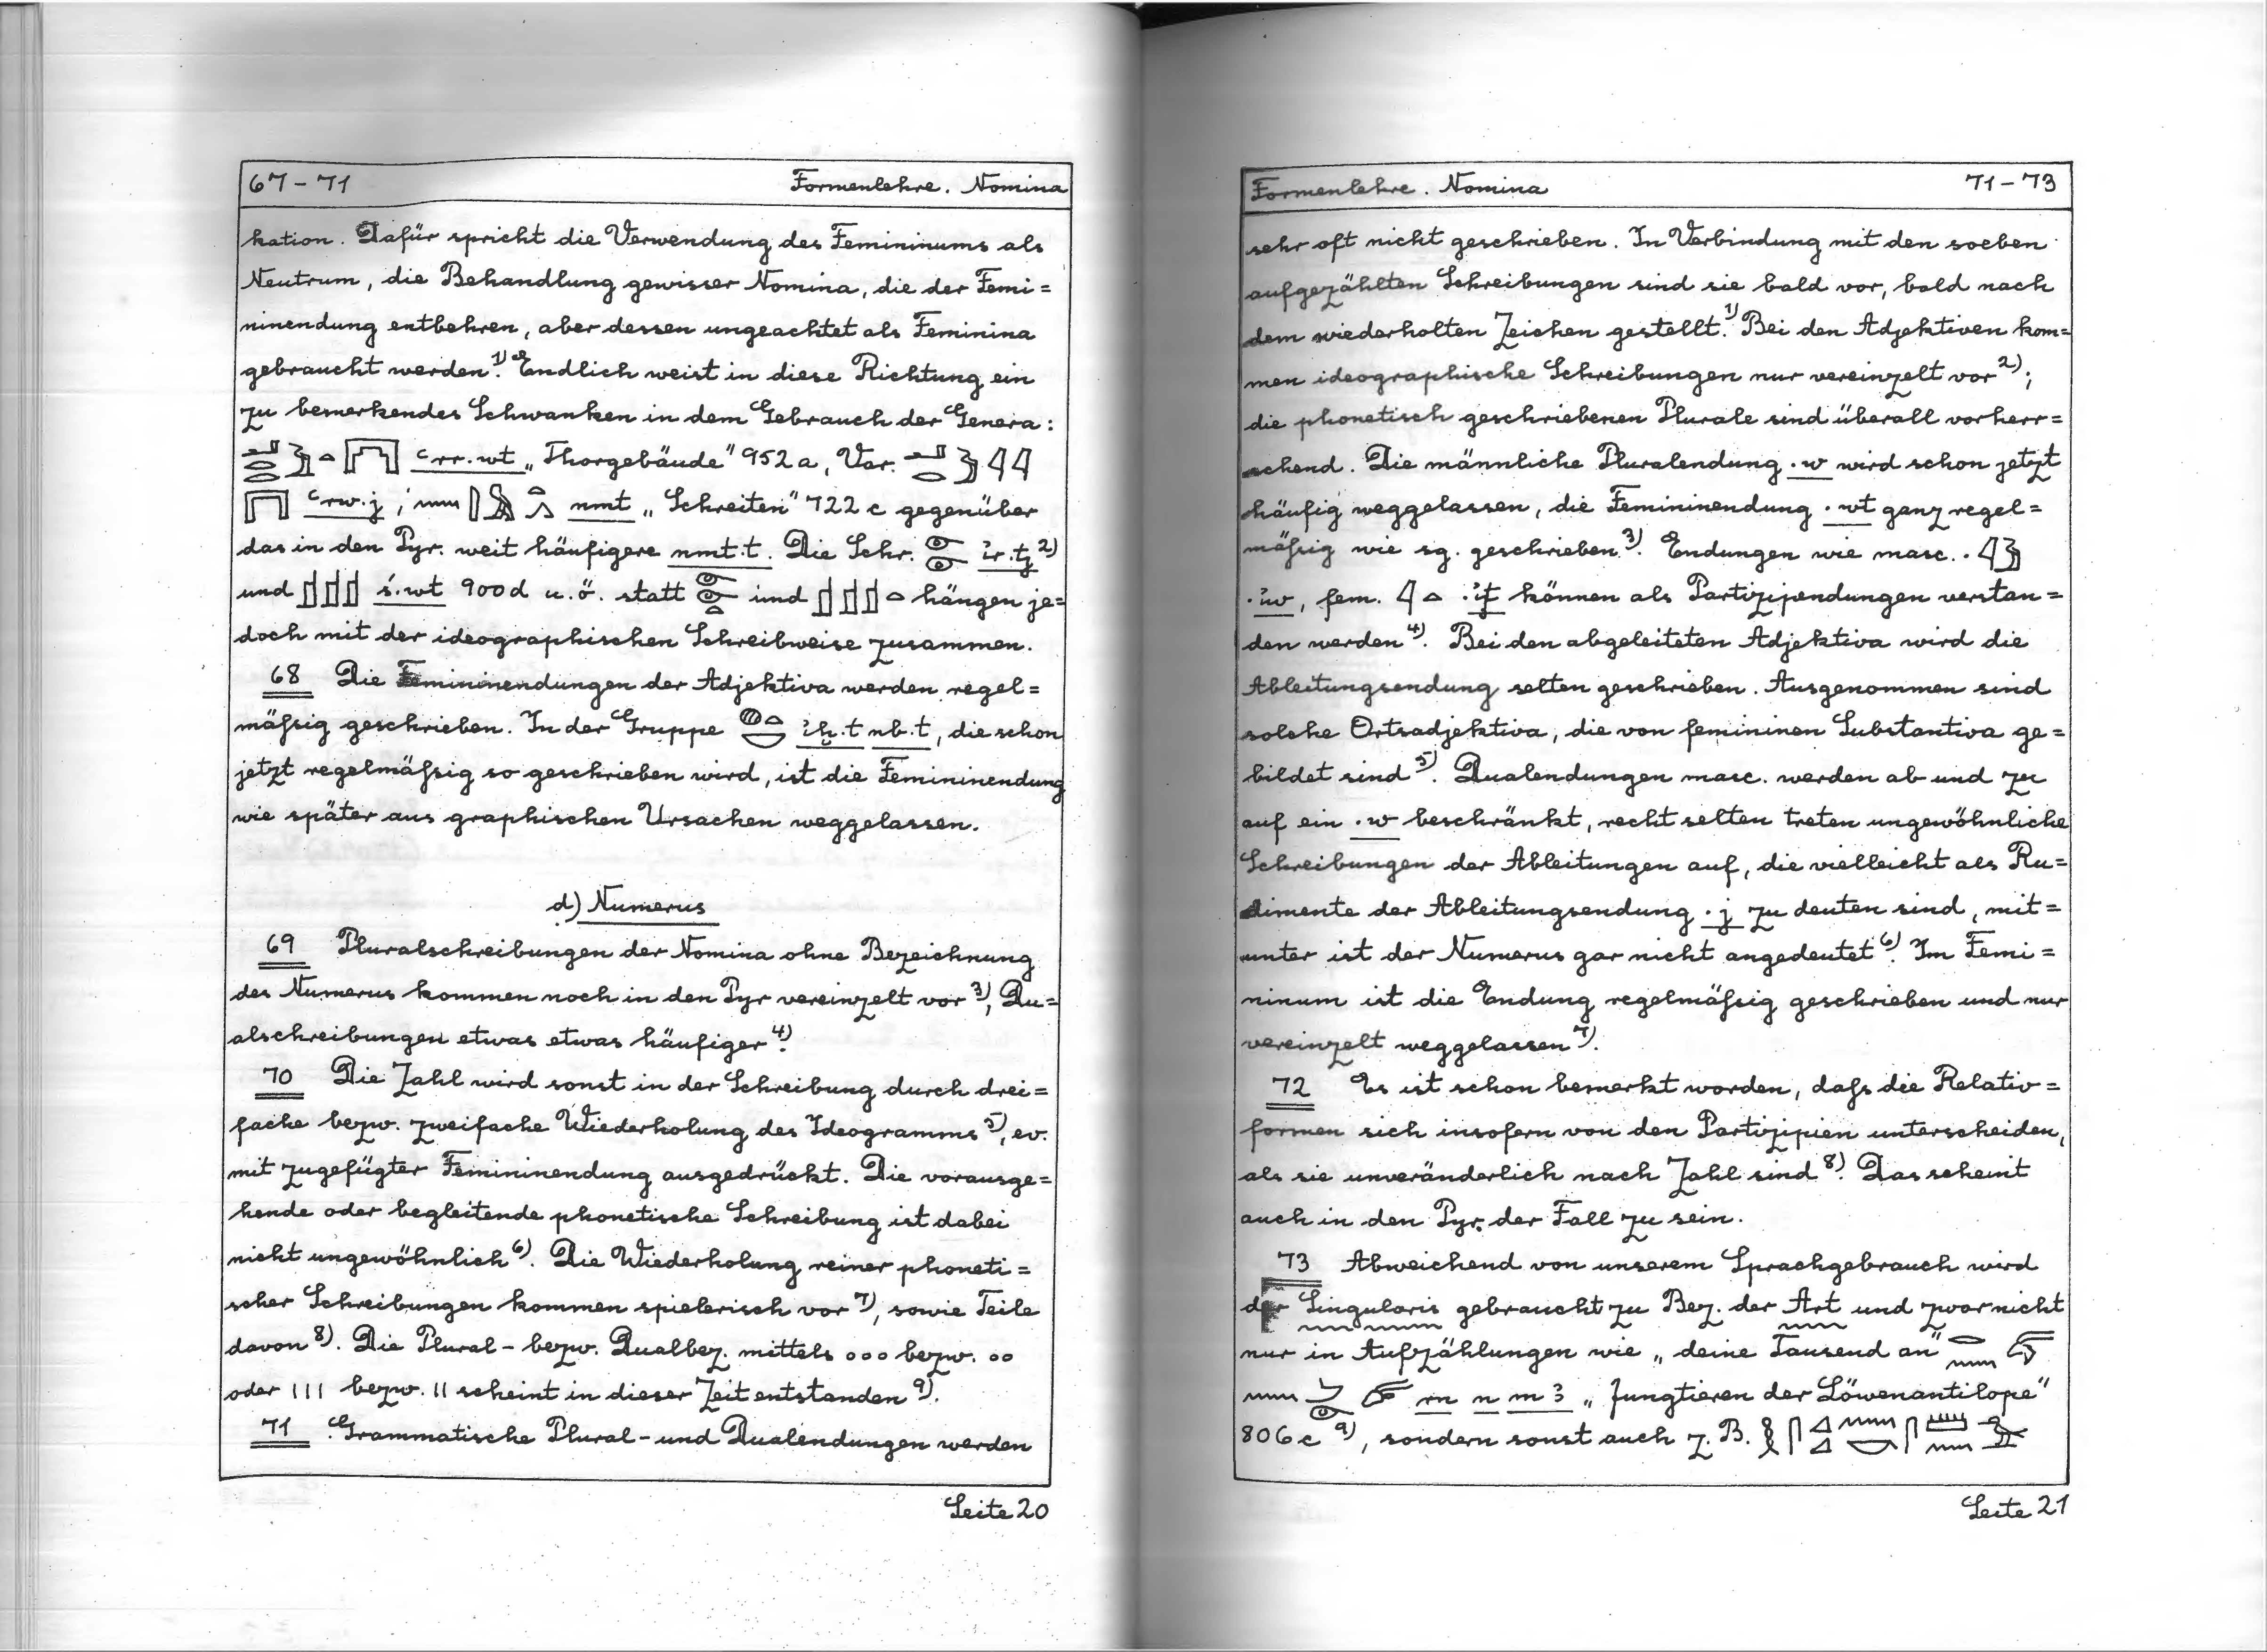 67-71 Formenlehre. Nomina
kation. Dafür spricht die Verwendung des Femininums als
Neutrum, die Behandlung gewisser Nomina, die der Femi=
ninendung entbehren, aber dessen ungeachtet als Feminina
gebraucht werden.1) Endlich weist in diese Richtung ein
zu bemerkendes Schwanken in dem Gebrauch der Genera:
ꜥrr.wt „Thorgebäude" 952a, Var.
ꜥrw.j, nmt „Schreiten" 722 c gegenüber
das in den Pyr. weit häufigere nmt.t. Die Schr. ỉr.tj 2)
und ś.wt 900d u.ö. statt und hängen je=
doch mit der ideographischen Schreibweise zusammen.
68 Die Femininendungen der Adjektiva werden regel=
mäſsig geschrieben. In der Gruppe ỉḫ.t nb.t, die schon
jetzt regelmäſsig so geschrieben wird, ist die Femininendung
wie später aus graphischen Ursachen weggelassen.
d) Numerus
69 Pluralschreibungen der Nomina ohne Bezeichnung
des Numerus kommen noch in den Pyr vereinzelt vor 3), Du=
alschreibungen etwas etwas häufiger 4).
70 Die Zahl wird sonst in der Schreibung durch drei=
fache bezw. zweifache Wiederholung des Ideogramms 5), ev.
mit zugefügter Femininendung ausgedrückt. Die vorausge=
hende oder begleitende phonetische Schreibung ist dabei
nicht ungewöhnlich 6). Die Wiederholung reiner phoneti=
scher Schreibungen kommen spielerisch vor 7), sowie Teile
davon 8). Die Plural- bezw. Dualbez. mittels ooo bezw. oo
oder ııı bezw. ıı scheint in dieser Zeit entstanden 9).
71 Grammatische Plural- und Dualendungen werden
Seite 20
Formenlehre. Nomina 71-73
sehr oft nicht geschrieben. In Verbindung mit den soeben
aufgezählten Schreibungen sind sie bald vor, bald nach
dem wiederholten Zeichen gestellt.1) Bei den Adjektiven kom=
men ideographische Schreibungen nur vereinzelt vor 2);
die phonetisch geschriebenen Plurale sind überall vorherr=
schend. Die männliche Pluralendung .w wird schon jetzt
häufig weggelassen, die Femininendung .wt ganz regel=
mäſsig wie sg. geschrieben 3). Endungen wie masc. . 𓇋𓅱
.ỉw, fem. 𓇋𓏏 .ỉt können als Partizipendungen verstan=
den werden 4). Bei den abgeleiteten Adjektiva wird die
Ableitungsendung selten geschrieben. Ausgenommen sind
solche Ortsadjektiva, die von femininen Substantiva ge=
bildet sind 5). Dualendungen masc. werden ab und zu
auf ein .w beschränkt, recht selten treten ungewöhnliche
Schreibungen der Ableitungen auf, die vielleicht als Ru=
dimente der Ableitungsendung .j zu deuten sind, mit=
unter ist der Numerus gar nicht angedeutet 6). Im Femi=
ninum ist die Endung regelmäſsig geschrieben und nur
vereinzelt weggelassen 7).
72 Es ist schon bemerkt worden, daſs die Relativ=
formen sich insofern von den Partizipien unterscheiden,
als sie unveränderlich nach Zahl sind 8). Das scheint
auch in den Pyr. der Fall zu sein.
73 Abweichend von unserem Sprachgebrauch wird
der Singularis gebraucht zu Bez. der Art und zwar nicht
nur in Aufzählungen wie „deine Tausend an"
rn n m ꜣ „Jungtieren der Löwenantilope"
806c 9), sondern sonst auch z. B.
Seite 21